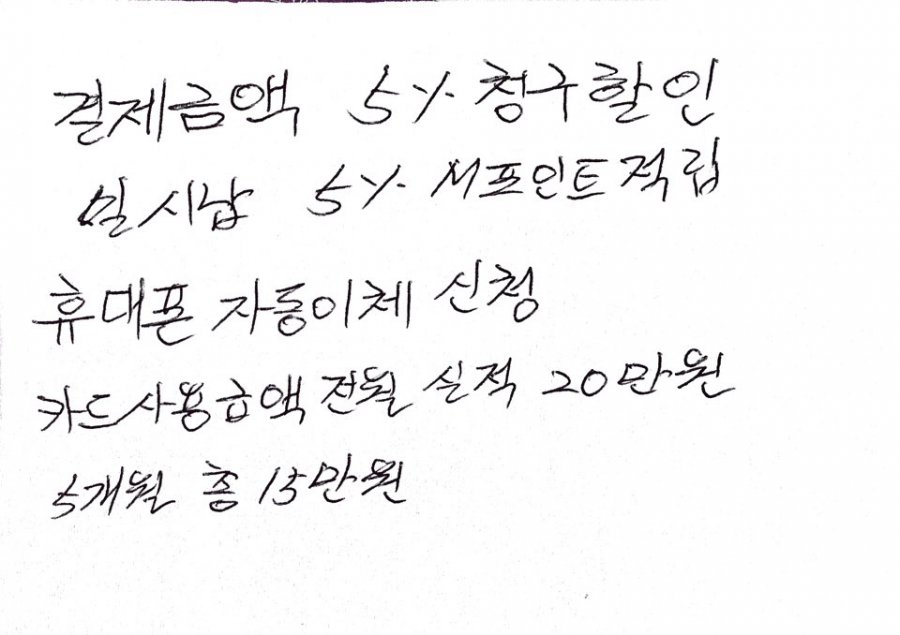 결제금액 5% 청구할인
일시납 5% M포인트적립
휴대폰 자동이체 신청
카드사용금액 전월 실적 20만원
5개월 총 15만원